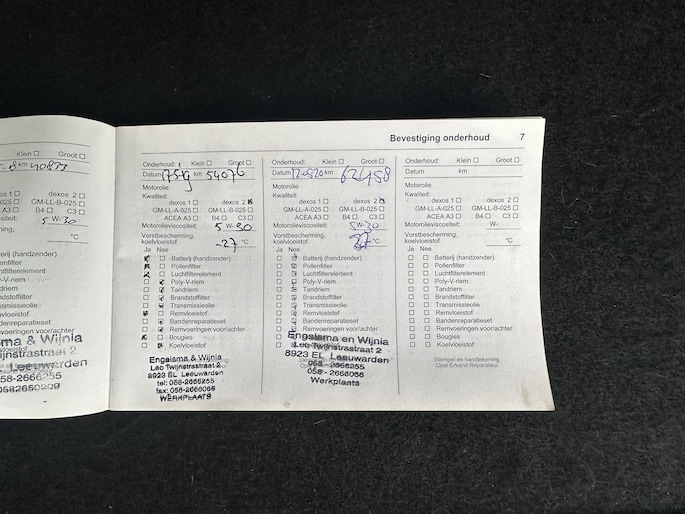 Bevestiging onderhoud 7
Klein Groot
km 40833
dexos 1 dexos 2
GM-LL-A-025 GM-LL-B-025
A3 B4 C3
5 W-30
°C
ma & Wijnia
Leeuwarden
058-2666255
0582650209
Onderhoud: Klein Groot
Datum km 54076
Motorolie
Kwaliteit:
dexos 1 dexos 2
GM-LL-A-025 GM-LL-B-025
ACEA A3 B4 C3
Motorolieviscositeit: 5 W-30
Vorstbescherming,
koelvloeistof -27 °C
Ja Nee
Batterij (handzender)
Pollenfilter
Luchtfilterelement
Poly-V-riem
Tandriem
Brandstoffilter
Transmissieolie
Remvloeistof
Bandenreparatieset
Remvoeringen voor/achter
Bougies
Koelvloeistof
Engelsma & Wijnia
Leo Twijnstrastraat 2
8923 EL Leeuwarden
tel: 058-2666255
fax: 058-2666066
WERKPLAATS
Onderhoud: Klein Groot
Datum km 62458
Motorolie
Kwaliteit:
dexos 1 dexos 2
GM-LL-A-025 GM-LL-B-025
ACEA A3 B4 C3
Motorolieviscositeit: 5W-30
Vorstbescherming,
koelvloeistof °C
Ja Nee
Batterij (handzender)
Pollenfilter
Luchtfilterelement
Poly-V-riem
Tandriem
Brandstoffilter
Transmissieolie
Remvloeistof
Bandenreparatieset
Remvoeringen voor/achter
Bougies
Koelvloeistof
Engelsma en Wijnia
Leo Twijnstrastraat 2
8923 EL Leeuwarden
058 - 2666255
058 - 2666066
Werkplaats
Onderhoud: Klein Groot
Datum km
Motorolie
Kwaliteit:
dexos 1 dexos 2
GM-LL-A-025 GM-LL-B-025
ACEA A3 B4 C3
Motorolieviscositeit: W-
Vorstbescherming,
koelvloeistof °C
Ja Nee
Batterij (handzender)
Pollenfilter
Luchtfilterelement
Poly-V-riem
Tandriem
Brandstoffilter
Transmissieolie
Remvloeistof
Bandenreparatieset
Remvoeringen voor/achter
Bougies
Koelvloeistof
Stempel en handtekening
Opel Erkend Reparateur